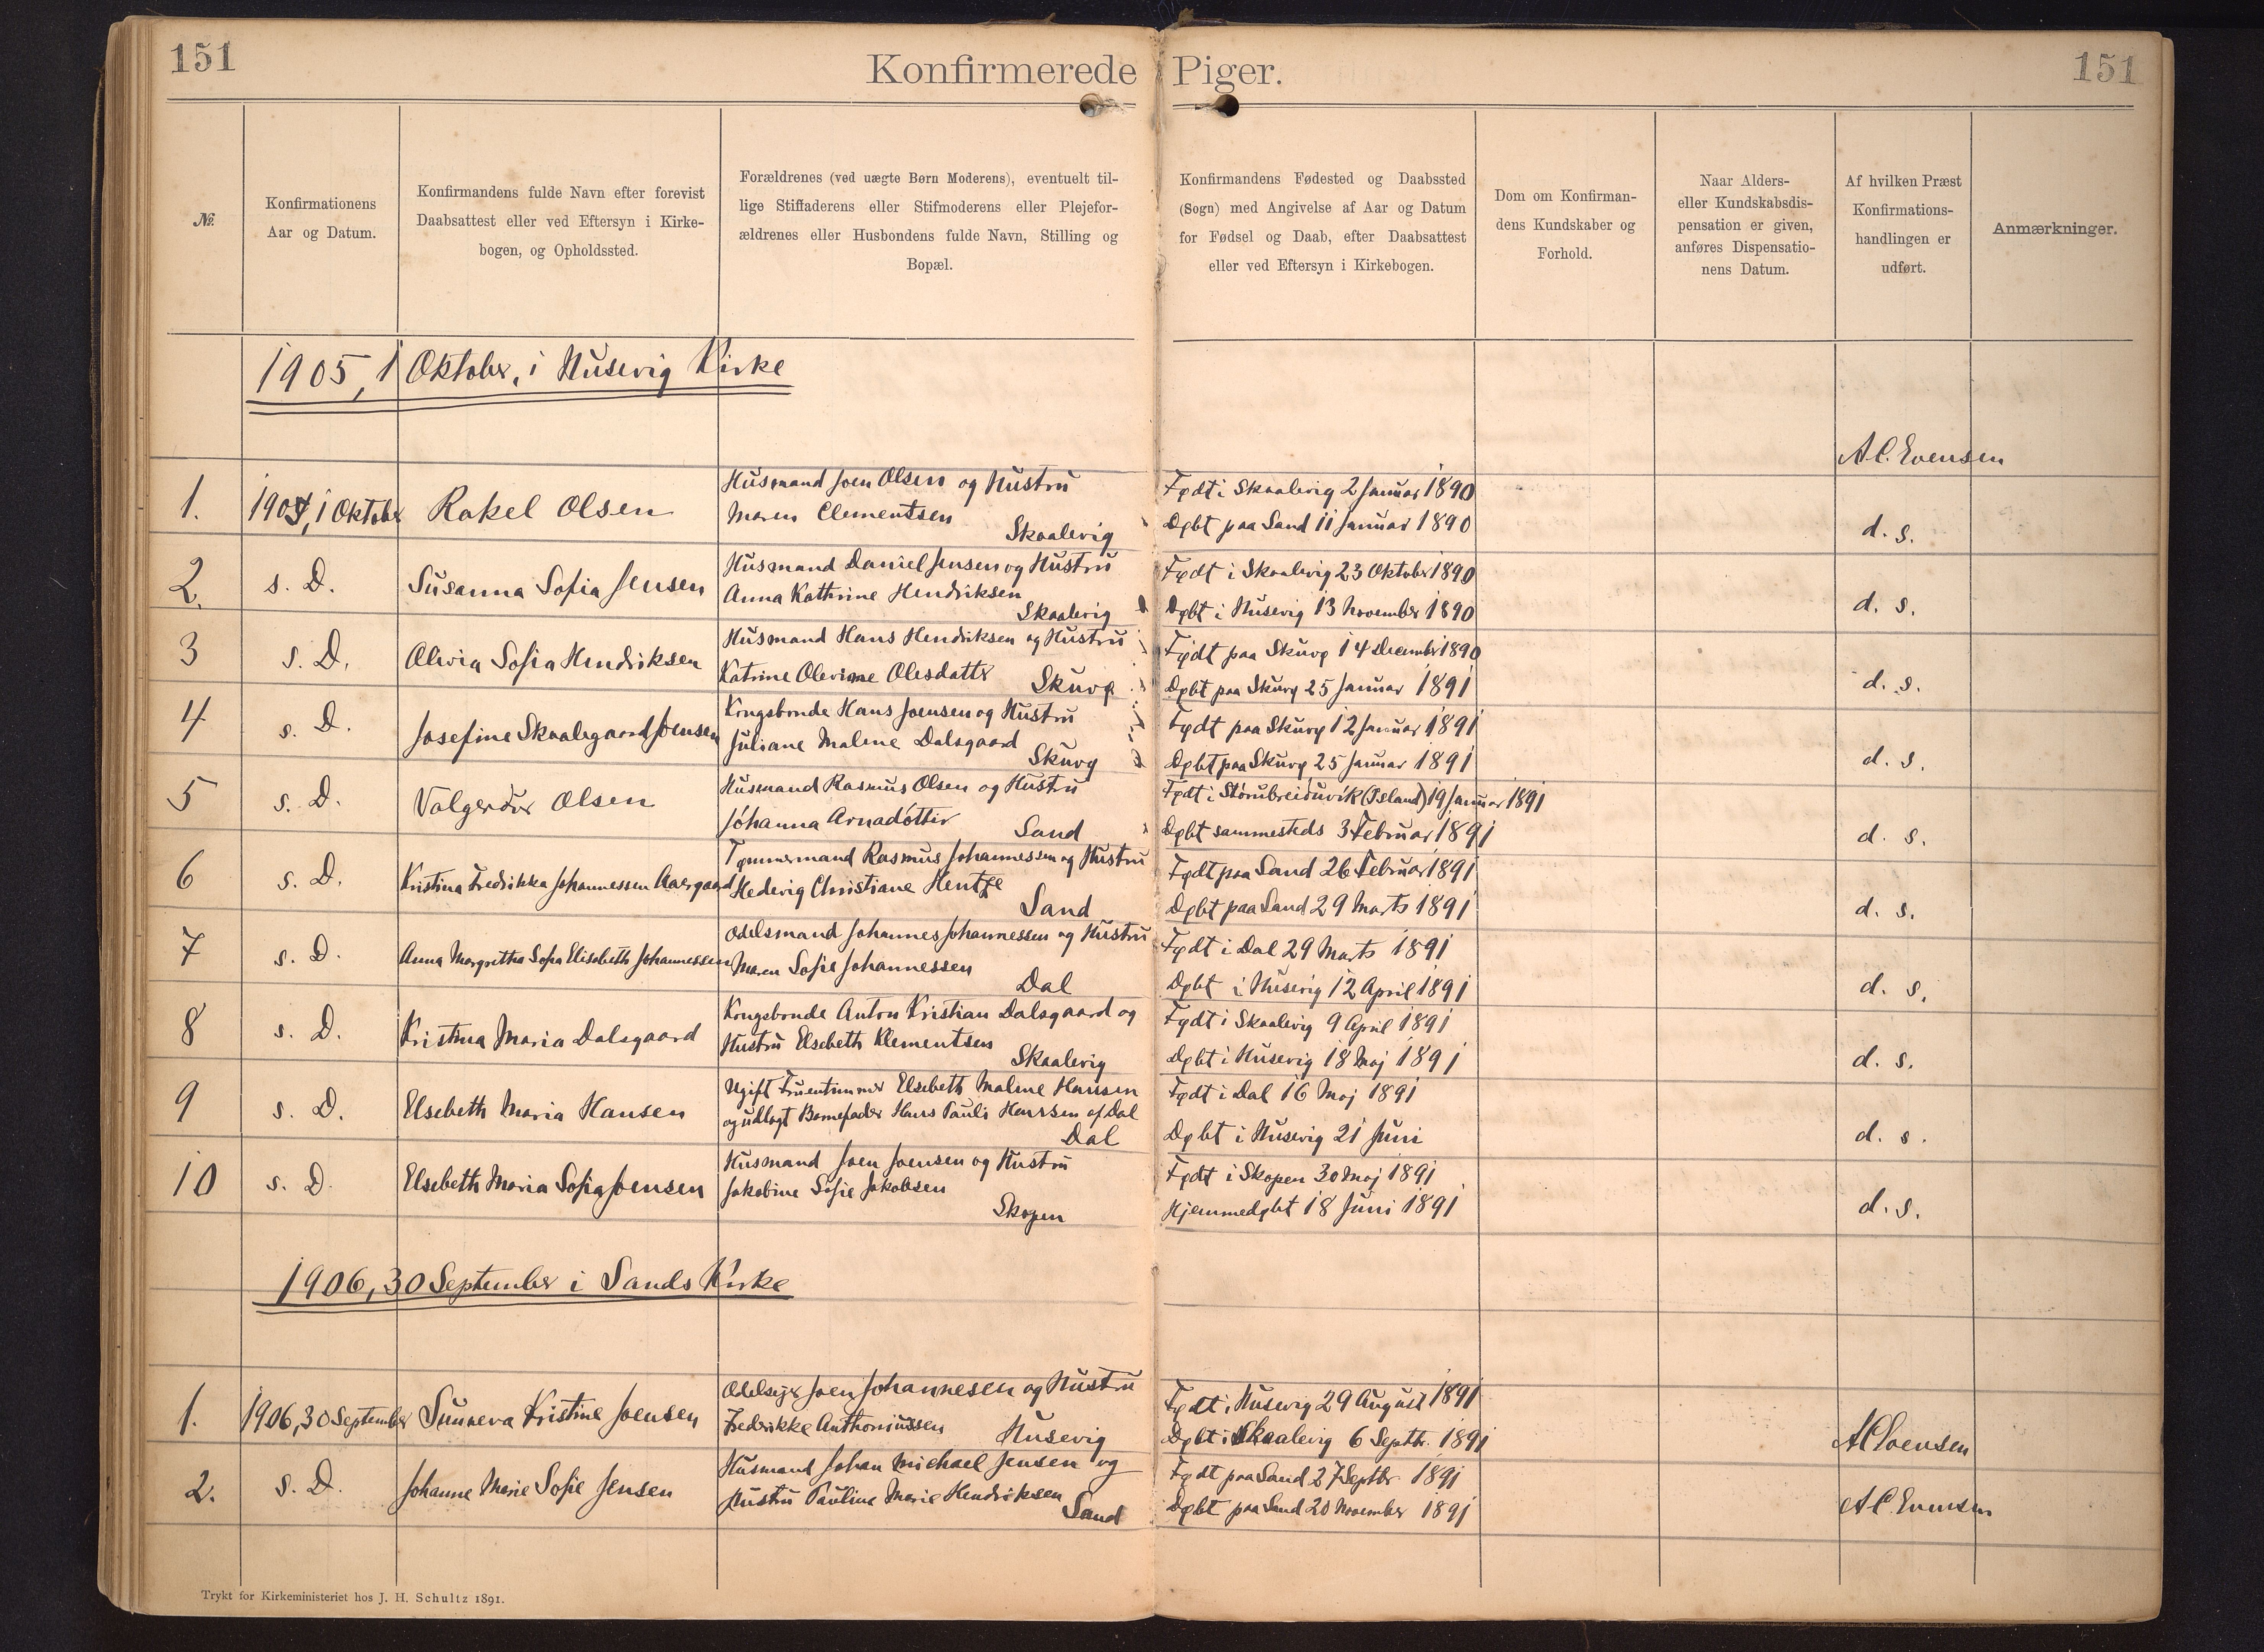 151
Konfirmerede Piger.
151
№.
Konfirmationens
Aar og Datum.
Konfirmandens fulde Navn efter forevist
Daabsattest eller ved Eftersyn i Kirke-
bogen, og Opholdssted.
Forældrenes (ved uægte Børn Moderens), eventuelt til-
lige Stiffaderens eller Stifmoderens eller Plejefor-
ældrenes eller Husbondens fulde Navn, Stilling og
Bopæl.
Konfirmandens Fødested og Daabssted
(Sogn) med Angivelse af Aar og Datum
for Fødsel og Daab, efter Daabsattest
eller ved Eftersyn i Kirkebogen.
Dom om Konfirman-
dens Kundskaber og
Forhold.
Naar Alders-
eller Kundskabsdis-
pensation er given,
anføres Dispensatio-
nens Datum.
Af hvilken Præst
Konfirmations-
handlingen er
udført.
Anmærkninger.
1905, 1 Oktober, i Husevig Kirke
A.C. Evensen
1.
1905, 1 Oktober
Rakel Olsen
Husmand Joen Olsen og Hustru
Maren Clementsen
Skaalevig
Født i Skaalevig 2 Januar 1890
Døbt paa Sand 11 Januar 1890
d. s.
2.
s. D.
Susanna Sofia Jensen
Husmand Daniel Jensen og Hustru
Anna Kathrine Hendriksen
Skaalevig
Født i Skaalevig 23 Oktober 1890
Døbt i Husevig 13 November 1890
d. s.
3
s. D.
Olivia Sofia Hendriksen
Husmand Hans Hendriksen og Hustru
Katrine Olevine Olesdatter
Skuvø
Født paa Skuvø 14 December 1890
Døbt paa Skuvø 25 Januar 1891
d. s.
4
s. D.
Josefine Skaalegaard Joensen
Kongsbonde Hans Joensen og Hustru
Juliane Malene Dalsgaard
Skuvø
Født paa Skuvø 12 Januar 1891
Døbt paa Skuvø 25 Januar 1891
d. s.
5
s. D.
Valgerður Olsen
Husmand Rasmus Olsen og Hustru
Jóhanna Arnadóttir
Sand
Født i Stórubreiðuvík (Island) 19 Januar 1891
Døbt sammesteds 3 Februar 1891
d. s.
6
s. D.
Kristina Fredrikka Johannessen Aaergaard
Tømmermand Rasmus Johannessen og Hustru
Hedevig Christiane Hentze
Sand
Født paa Sand 26 Februar 1891
Døbt paa Sand 29 Marts 1891
d. s.
7
s. D.
Anna Margretha Sofia Elisebeth Johannessen
Odelsmand Johannes Johannessen og Hustru
Maren Sofie Johannessen
Dal
Født i Dal 29 Marts 1891
Døbt i Husevig 12 April 1891
d. s.
8
s. D.
Kristina Maria Dalsgaard
Kongsbonde Anton Kristian Dalsgaard og
Hustru Elsebeth Klementsen
Skaalevig
Født i Skaalevig 9 April 1891
Døbt i Husevig 18 Maj 1891
d. s.
9
s. D.
Elsebeth Maria Hansen
Ugift Fruentimmer Elsebeth Malene Hansen
og udlagt Barnefader Hans Pauli Hanssen af Dal
Dal
Født i Dal 16 Maj 1891
Døbt i Husevig 21 Juni
d. s.
10
s. D.
Elsebeth Maria Sofia Joensen
Husmand Joen Joensen og Hustru
Jakobine Sofie Jakobsen
Skopen
Født i Skopen 30 Maj 1891
Hjemmedøbt 18 Juni 1891
d. s.
1906, 30 September i Sands Kirke
1.
1906, 30 September
Sunneva Kristine Joensen
Odelsejer Joen Johannesen og Hustru
Fredrikke Anthoniussen
Husevig
Født i Husevig 29 August 1891
Døbt i Skaalevig 6 Septbr. 1891
A.C. Evensen
2.
s. D.
Johanne Marie Sofie Jensen
Husmand Johan Michael Jensen og
Hustru Pauline Marie Hendriksen
Sand
Født paa Sand 27 Septbr. 1891
Døbt paa Sand 20 November 1891
A.C. Evensen
Trykt for Kirkeministeriet hos J. H. Schultz 1891.